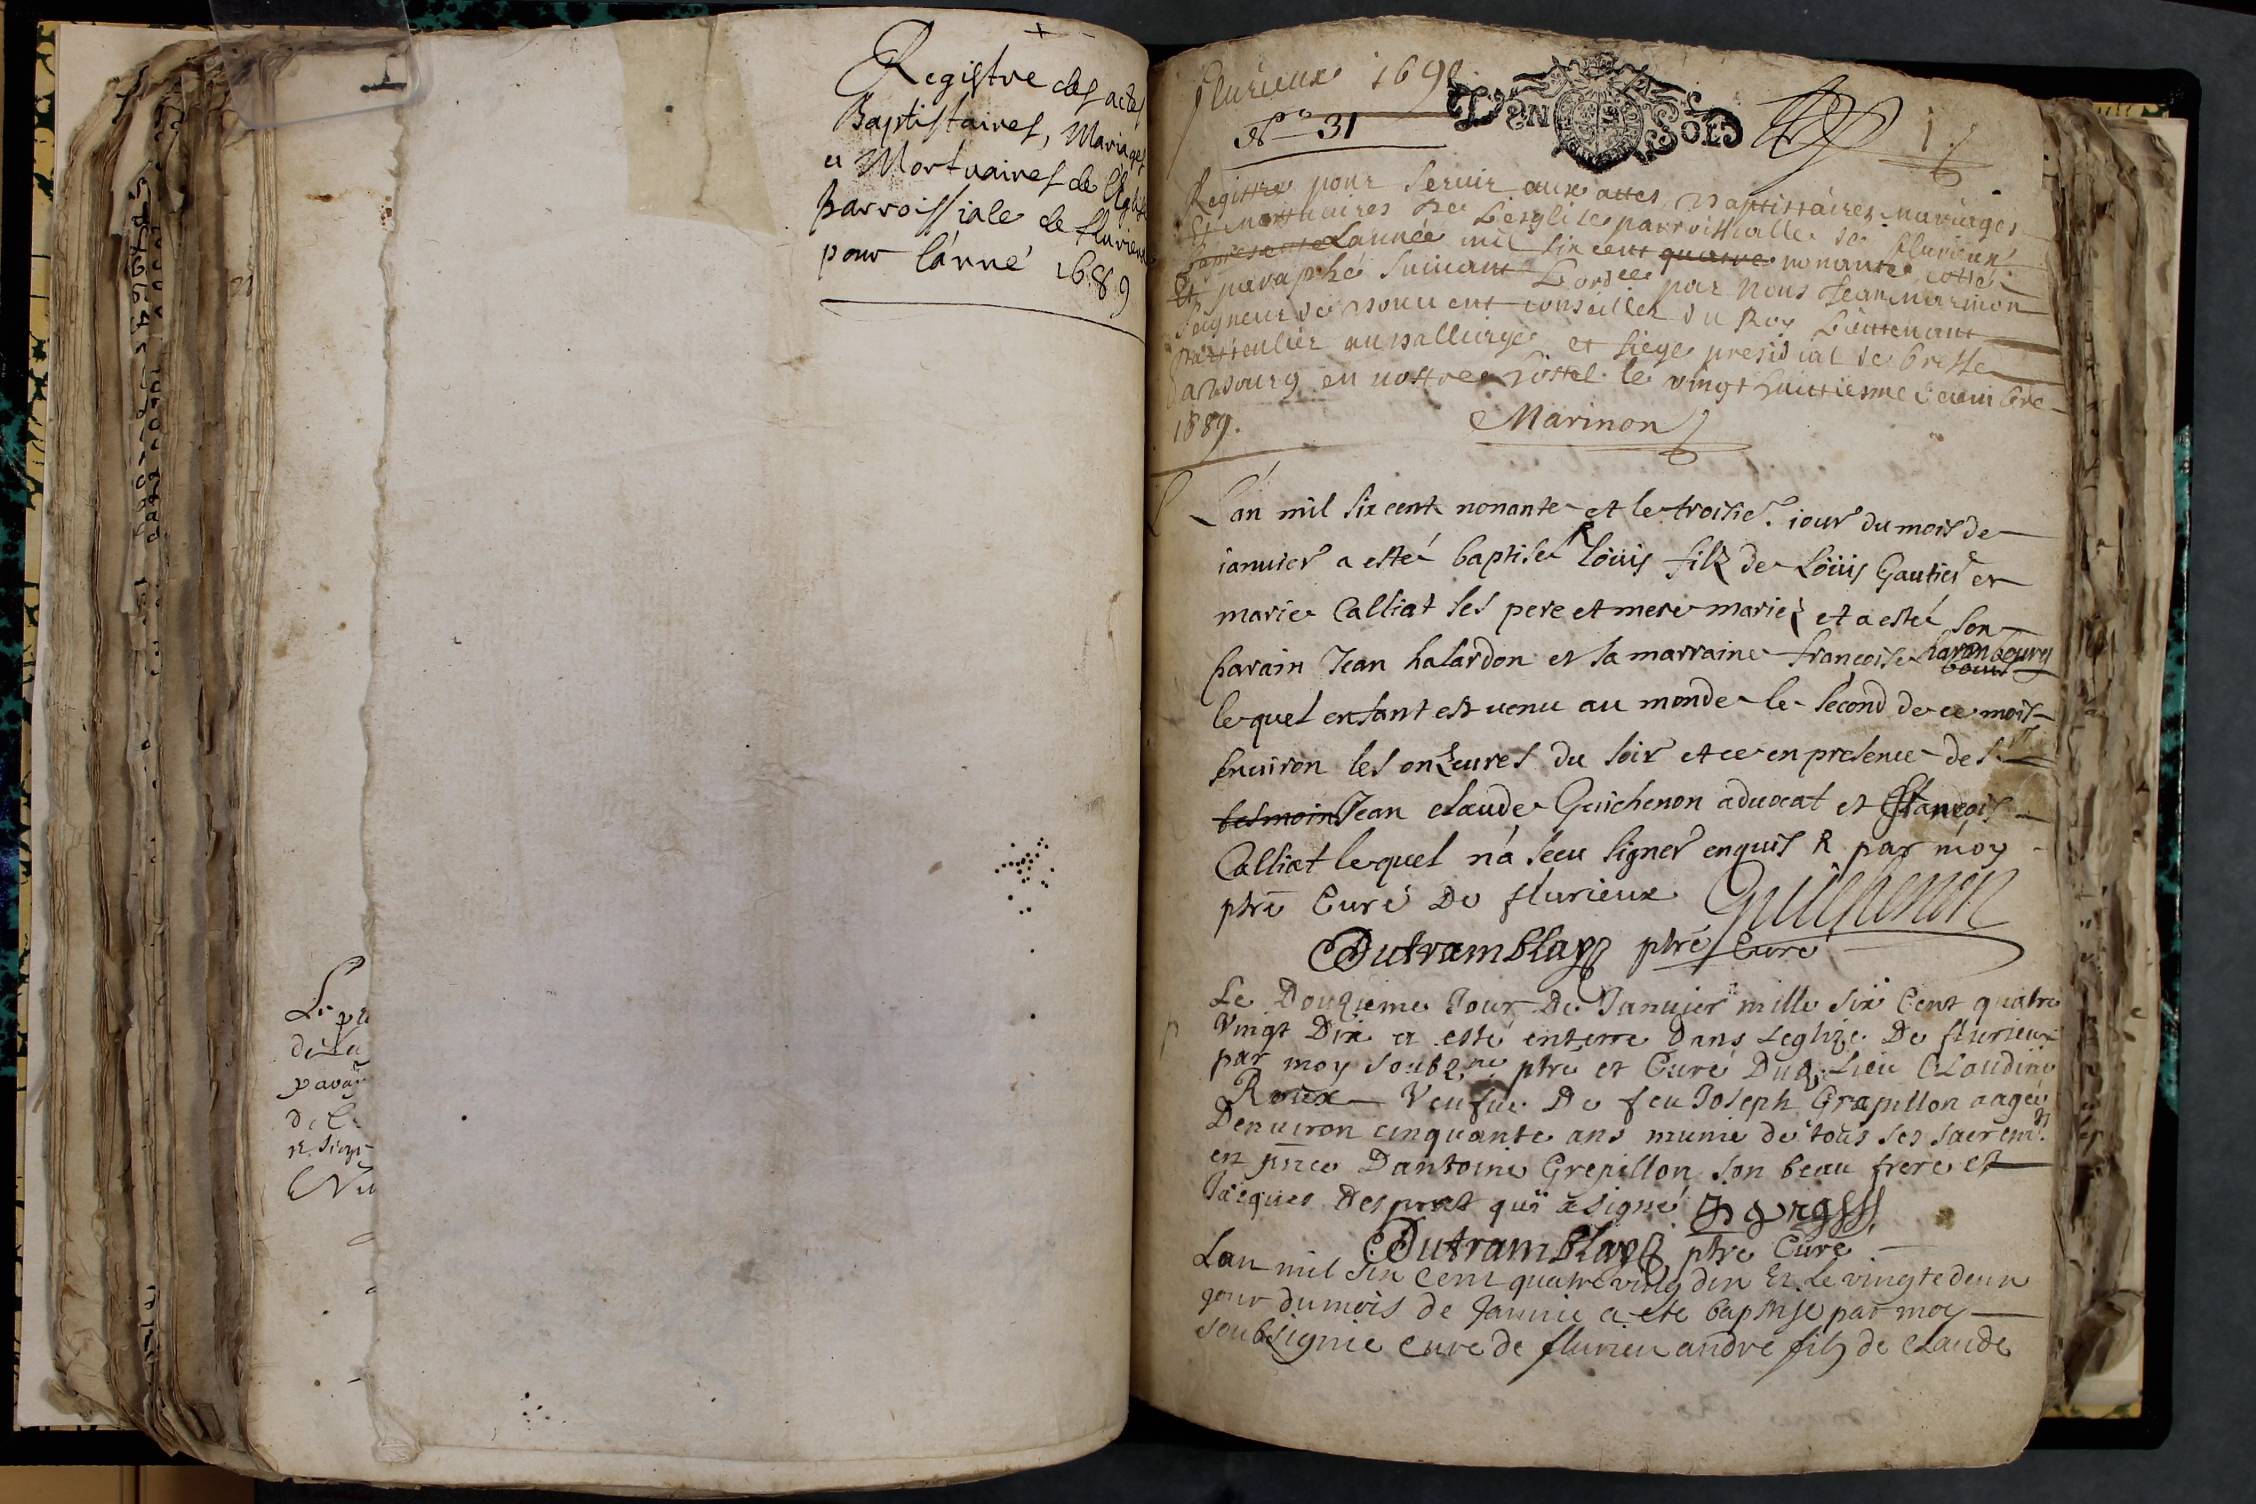 Registre des actes
Baptistaires, Mariages
et Mortuaires de l'Eglise
parroissiale de flurieux
pour l'année 1689
Le
de la
de
flurieux 1690
N° 31
LYON
SOLS
1
Registre pour servir aux actes Baptistaires mariages
Et mortuaires De Lesglise parroissialle de flurieux
L'année mil six cent quatre nonante cotté
Et paraphé suivant L'ord^ce par Nous Jean marinon
seigneur de Bouvent conseiller du Roy Lieutenant
particulier au balliage et siege presidial de bresse
a Bourg en nostre hostel le vingt huictiesme decembre
1689.
Marinon
L'an mil six cent nonante et le troisie. iour du mois de
ianvier a esté baptisé Loüis filz de Loüis Gautier et
marie Calliat ses pere et mere mariez et a esté son
parain Jean halardon et sa marraine francoise haranbourg
bourg
le quel enfant est venu au monde le second de ce mois
environ les onzeures du soir et ce en presence de s^r
tesmoin Jean claude Guichenon advocat et francois
Calliat lequel n'a sceu signer enquis R par moy
ptre Curé De flurieux Guichenon
Dutramblay ptre Curé
Le Douzieme Jour De Janvier mille six Cent quatre
Vingt Dix a esté enterre Dans Leglize De flurieux
par moy soubz.^né ptre et Curé Dud. Lieu CLaudine
Roux Veufve De feu Joseph Grapillon aagée
Denviron cinquante ans munie de tous ses sacrem^ts
en pnce Dantoine Grepillon son beau frere et
Jacques Desprest qui a signé
Dutramblay ptre Curé
Lan mil six Cent quatre ving dix Et Le vingte deux
jour du mois de Janvie a ete baptise par moy
soubsignie Cure de flurieu andre filz de Claude